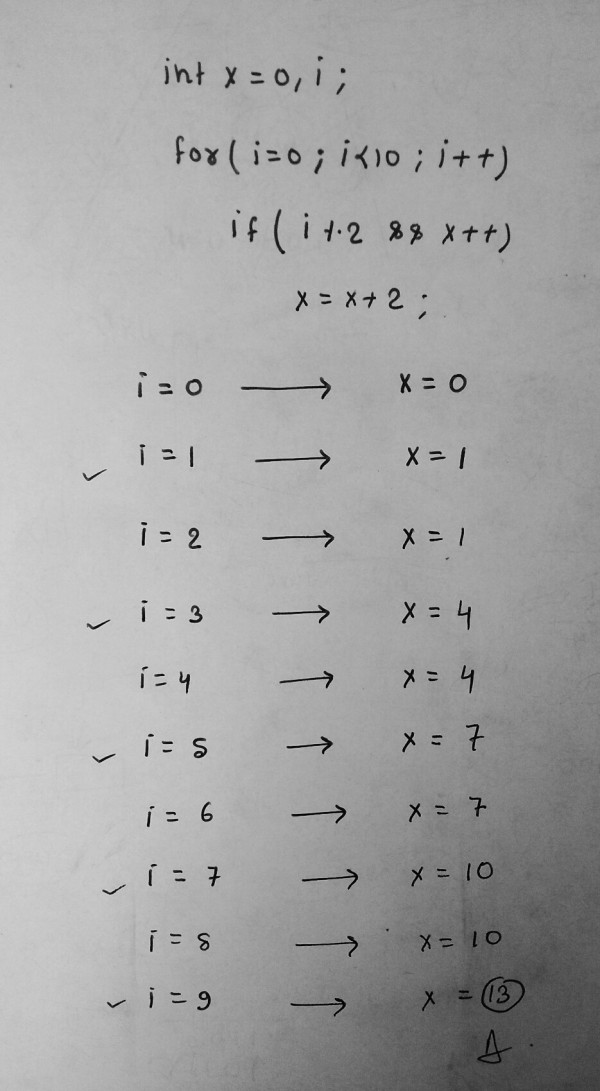 int x = 0, i ;
for ( i=0 ; i<10 ; i++)
if ( i % 2 && x++)
x = x+2 ;
i = 0 ⟶ x = 0
✓ i = 1 ⟶ x = 1
i = 2 ⟶ x = 1
✓ i = 3 ⟶ x = 4
i = 4 ⟶ x = 4
✓ i = 5 ⟶ x = 7
i = 6 ⟶ x = 7
✓ i = 7 ⟶ x = 10
i = 8 ⟶ x = 10
✓ i = 9 ⟶ x = 13